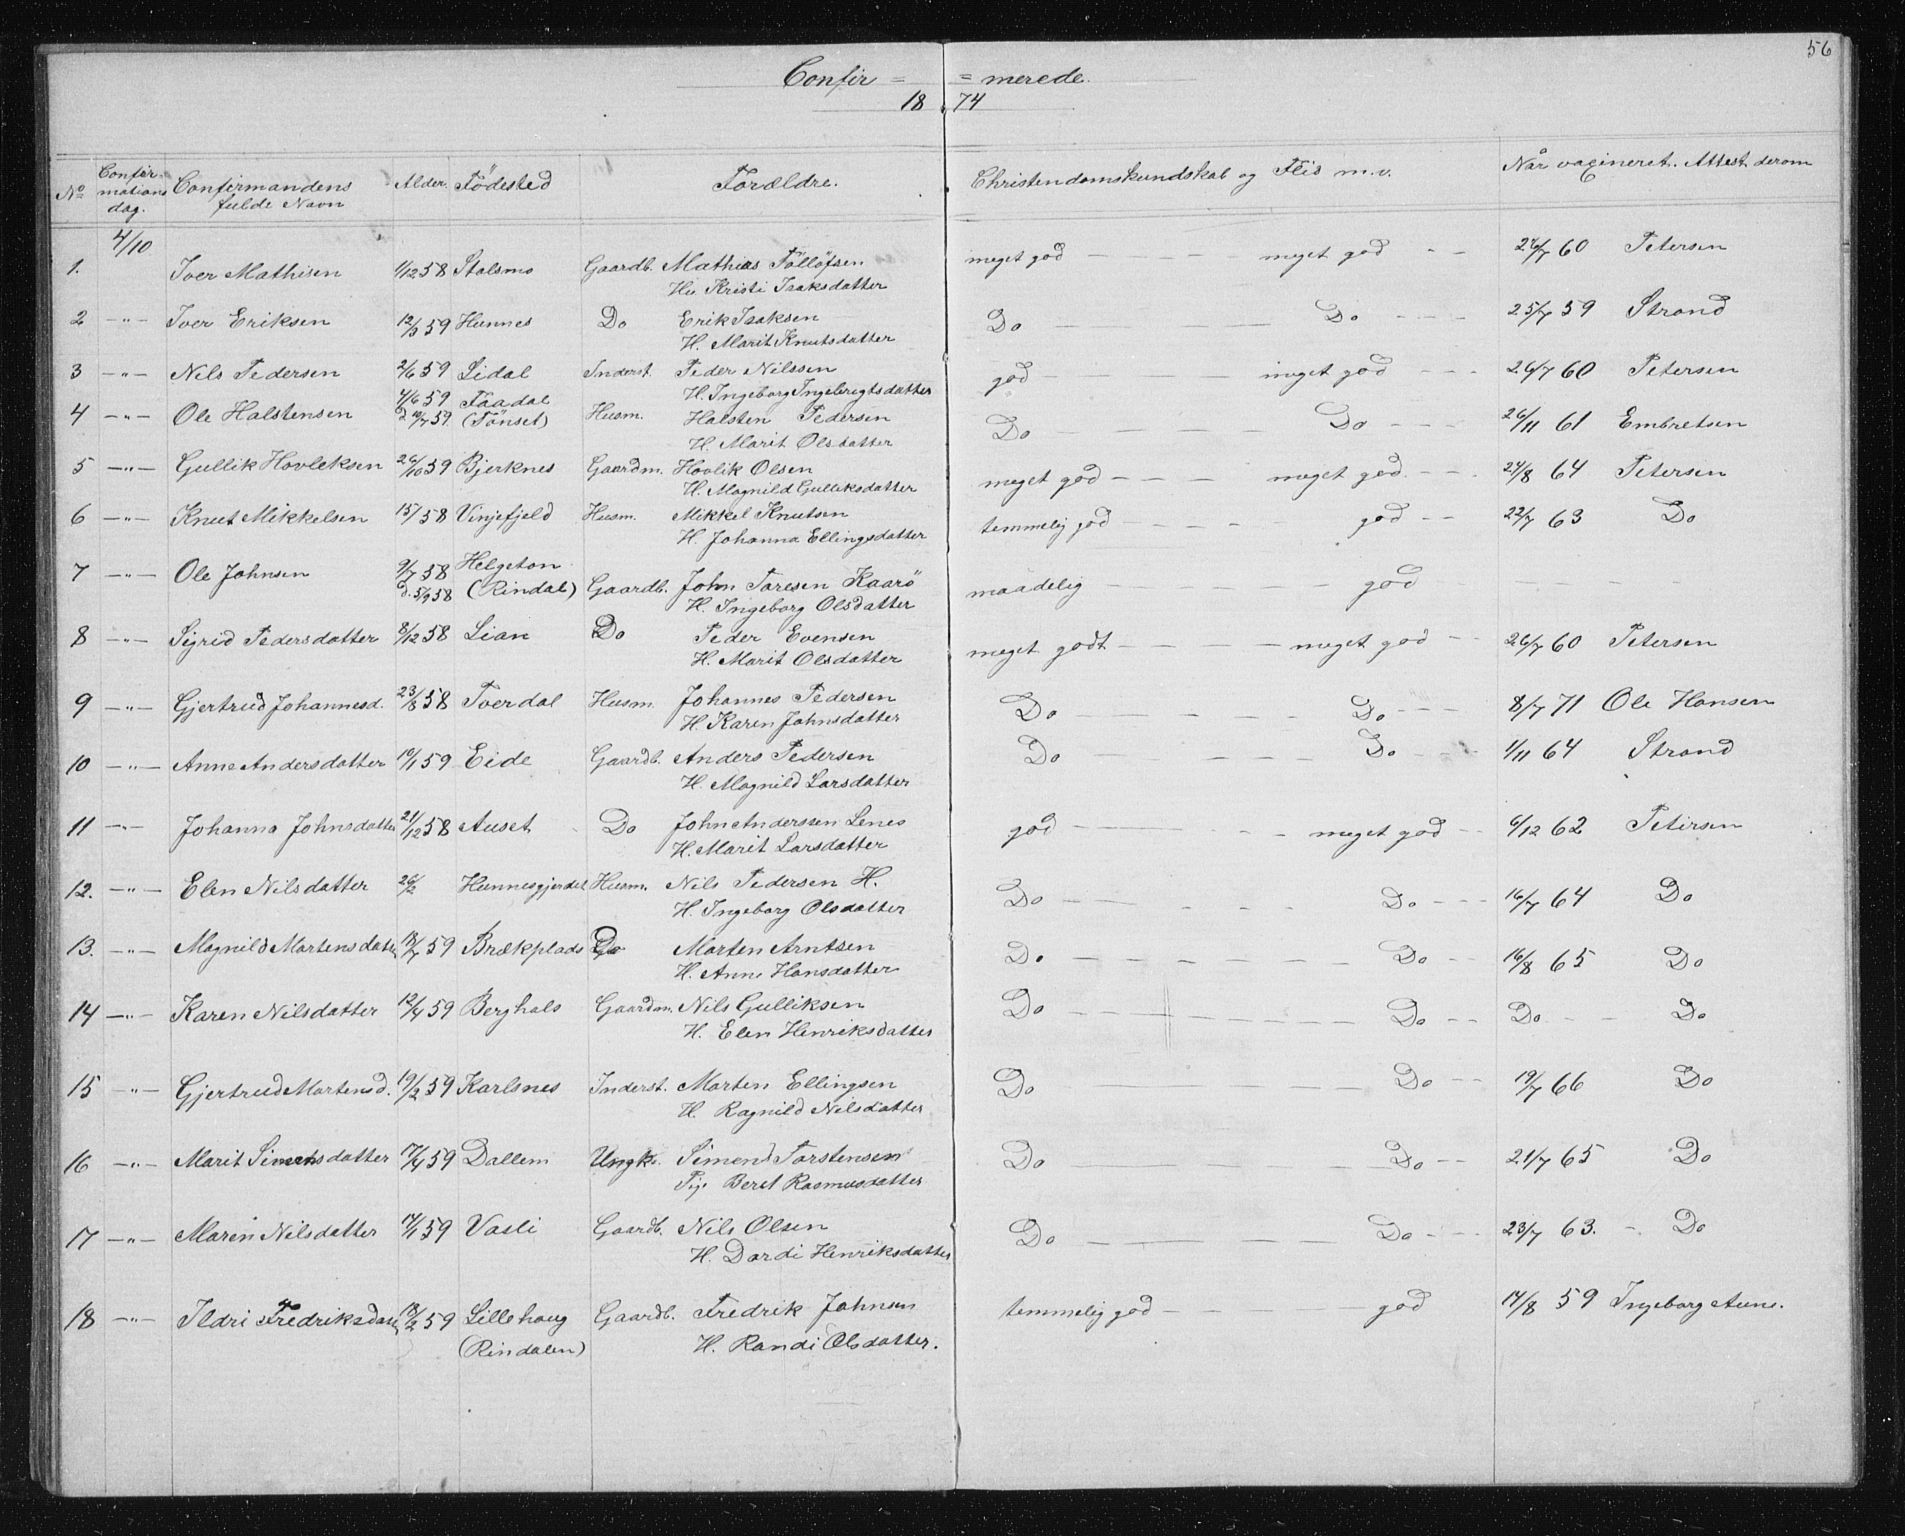 56
Confir = = merede.
18 74
No Confirmations dag. Confirmandens fulde Navn Alder. Födested Forældre. Christendomskundskab og Flid m.v. Når vaxineret. Attest derom
4/10
1. Iver Mathisen 1/12 58 Stalsmo Gaardb. Mathias Tölløfsen meget god — — — meget god — — 26/7 60 Petersen
Hu Kristi Isaksdatter
2 —"— Iver Eriksen 12/3 59 Hunnes Do Erik Isaksen Do — — — Do — — — 25/7 59 Strand
H. Marit Knutsdatter
3 —"— Nils Pedersen 2/6 59 Lidal Inderst. Peder Nilssen god — — — meget god — — — 26/7 60 Petersen
H. Ingeborg Ingebregtsdatter
4 —"— Ole Halstensen 4/6 59 Faadal Husm. Halsten Pedersen Do — — — Do — — — 26/11 61 Embretsen
d 10/7 59. (Tönset) H. Marit Olsdatter
5 —"— Gullik Hovleksen 26/10 59 Bjerknes Gaardm. Hovlik Olsen meget god — — — meget god. — — 24/8 64 Petersen
H. Magnild Gulliksdatter
6 —"— Knut Mikkelsen 15/ 58 Vinjefjeld Husm. Mikkel Knutsen temmelig god — — — god — — 22/7 63 Do
H. Johanna Ellingsdatter
7 —"— Ole Johnsen 9/7 58 Helgeton Gaardb. John Toresen Kaarö maadelig — — — god — — — —
d. 5/9 58 (Rindal) H. Ingeborg Olsdatter
8 —"— Sigrid Pedersdatter 8/12 58 Lian Do Peder Evensen meget godt — — — meget god — — 26/7 60 Petersen
H. Marit Olsdatter
9 —"— Gjertrud Johannesd. 23/8 58 Tverdal Husm. Johannes Pedersen Do — — — Do — — — 8/7 71 Ole Hansen
H. Karen Johnsdatter
10 —"— Anne Andersdatter 19/1 59 Eide Gaardb. Anders Pedersen Do — — — Do — — — 1/11 64 Strand
H. Magnild Larsdatter
11 —"— Johanna Johnsdatter 21/12 58 Auset Do John Anderssen Lenes god — — — meget god — — 6/12 62 Petersen
H. Marit Larsdatter
12. —"— Elen Nilsdatter 26/2 Hunnesgjerdet Husm. Nils Pedersen H. Do — — — Do — — — 16/7 64 Do
H. Ingeborg Olsdatter
13. —"— Magnild Martensdatter 18/7 59 Brækplads Do Morten Arntsen Do — — — Do — — 16/8 65 Do
H. Anne Hansdatter
14 —"— Karen Nilsdatter 12/4 59 Berghals Gaardm. Nils Gulliksen Do — — — Do — — Do — — Do
H. Elen Henriksdatter
15 —"— Gjertrud Martensd. 19/2 59 Karlsnes Inderst. Morten Ellingsen Do — — — Do — — 19/7 66 Do
H. Ragnild Nilsdatter
16 —"— Marit Simensdatter 17/4 59 Dallem Ungk. Simend Torstensen Do — — — Do — — 21/7 65 Do
Pig. Beret Rasmusdatter
17 —"— Maren Nilsdatter 17/1 59 Vasli Gaardb. Nils Olsen Do — — — Do — — — 23/7 63. — Do
H. Dordi Henriksdatter
18 —"— Ildri Fredriksdatter 18/2 59 Lillehoug Gaardb. Fredrik Johnsen temmelig god — — — god 14/8 59 Ingeborg Aune.
(Rindalen) H. Randi Olsdatter.